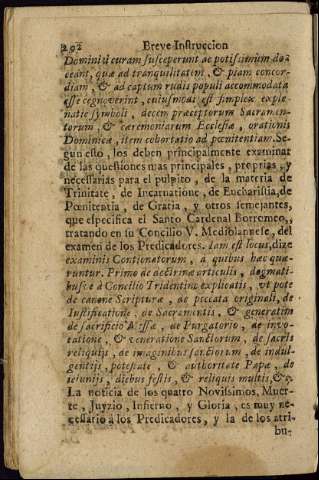 292 Breve Instruccion
Domini ii curam susceperunt ac potissimum do-
ceant, quæ ad tranquilitatem, & piam concor-
diam, & ad captum rudis populi accommodata
esse cegnoverint, cuiusmodi est simplex expla-
natio symboli, decem præceptorum Sacramen-
torum, & cæremoniarum Ecclesiæ, orationis
Dominicæ, item cohortatio ad pœnitentiam. Se-
gun esto, los deben principalmente examinar
de las questiones mas principales, proprias, y
necessarias para el pulpito, de la materia de
Trinitate, de Incarnatione, de Eucharistia, de
Pœnitentia, de Gratia, y otros semejantes,
que especifica el Santo Cardenal Borromeo,
tratando en su Concilio V. Mediolanense, del
examen de los Predicadores. Iam est locus, dize
examinis Contionatorum, a quibus hæc quæ-
runtur. Primo de doctrinæ articulis, dogmati-
busve à Concilio Tridentino explicatis, ut pote
de canone Scripturæ, de peccato originali, de
Iustificatione, de Sacramentis, & generatim
de sacrificio Missæ, de Purgatorio, de invo-
catione, & veneratione Sanctorum, de sacris
reliquiis, de imaginibus sanctorum, de indul-
gentiis, potestate, & authoritate Papæ, de
ieiuniis, diebus festis, & reliquis multis, &c.
La noticia de los quatro Novissimos, Muer-
te, Juyzio, Infierno, y Gloria, es muy ne-
cessario à los Predicadores, y la de los atri-
bu-